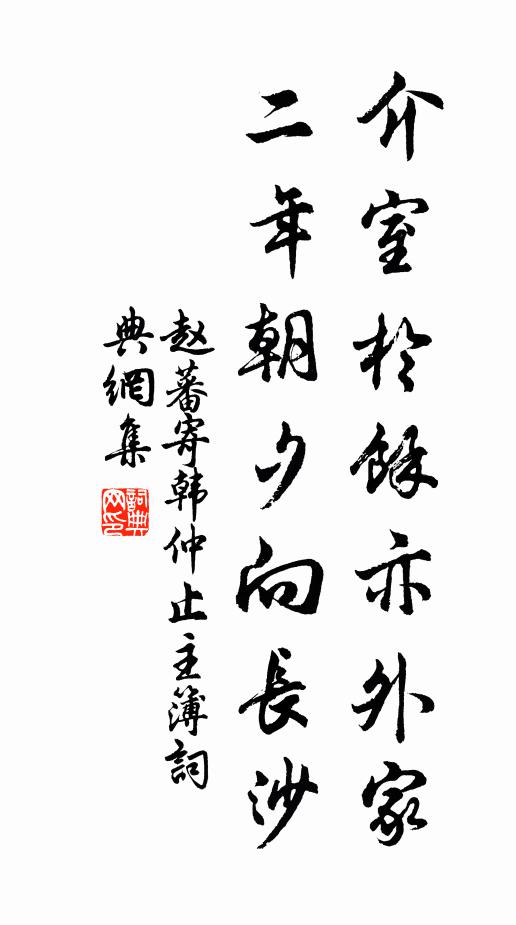 介室於餘亦外家
二年朝夕向長沙
赵蕃寄韩仲止主簿詞
典網集
詞典网印